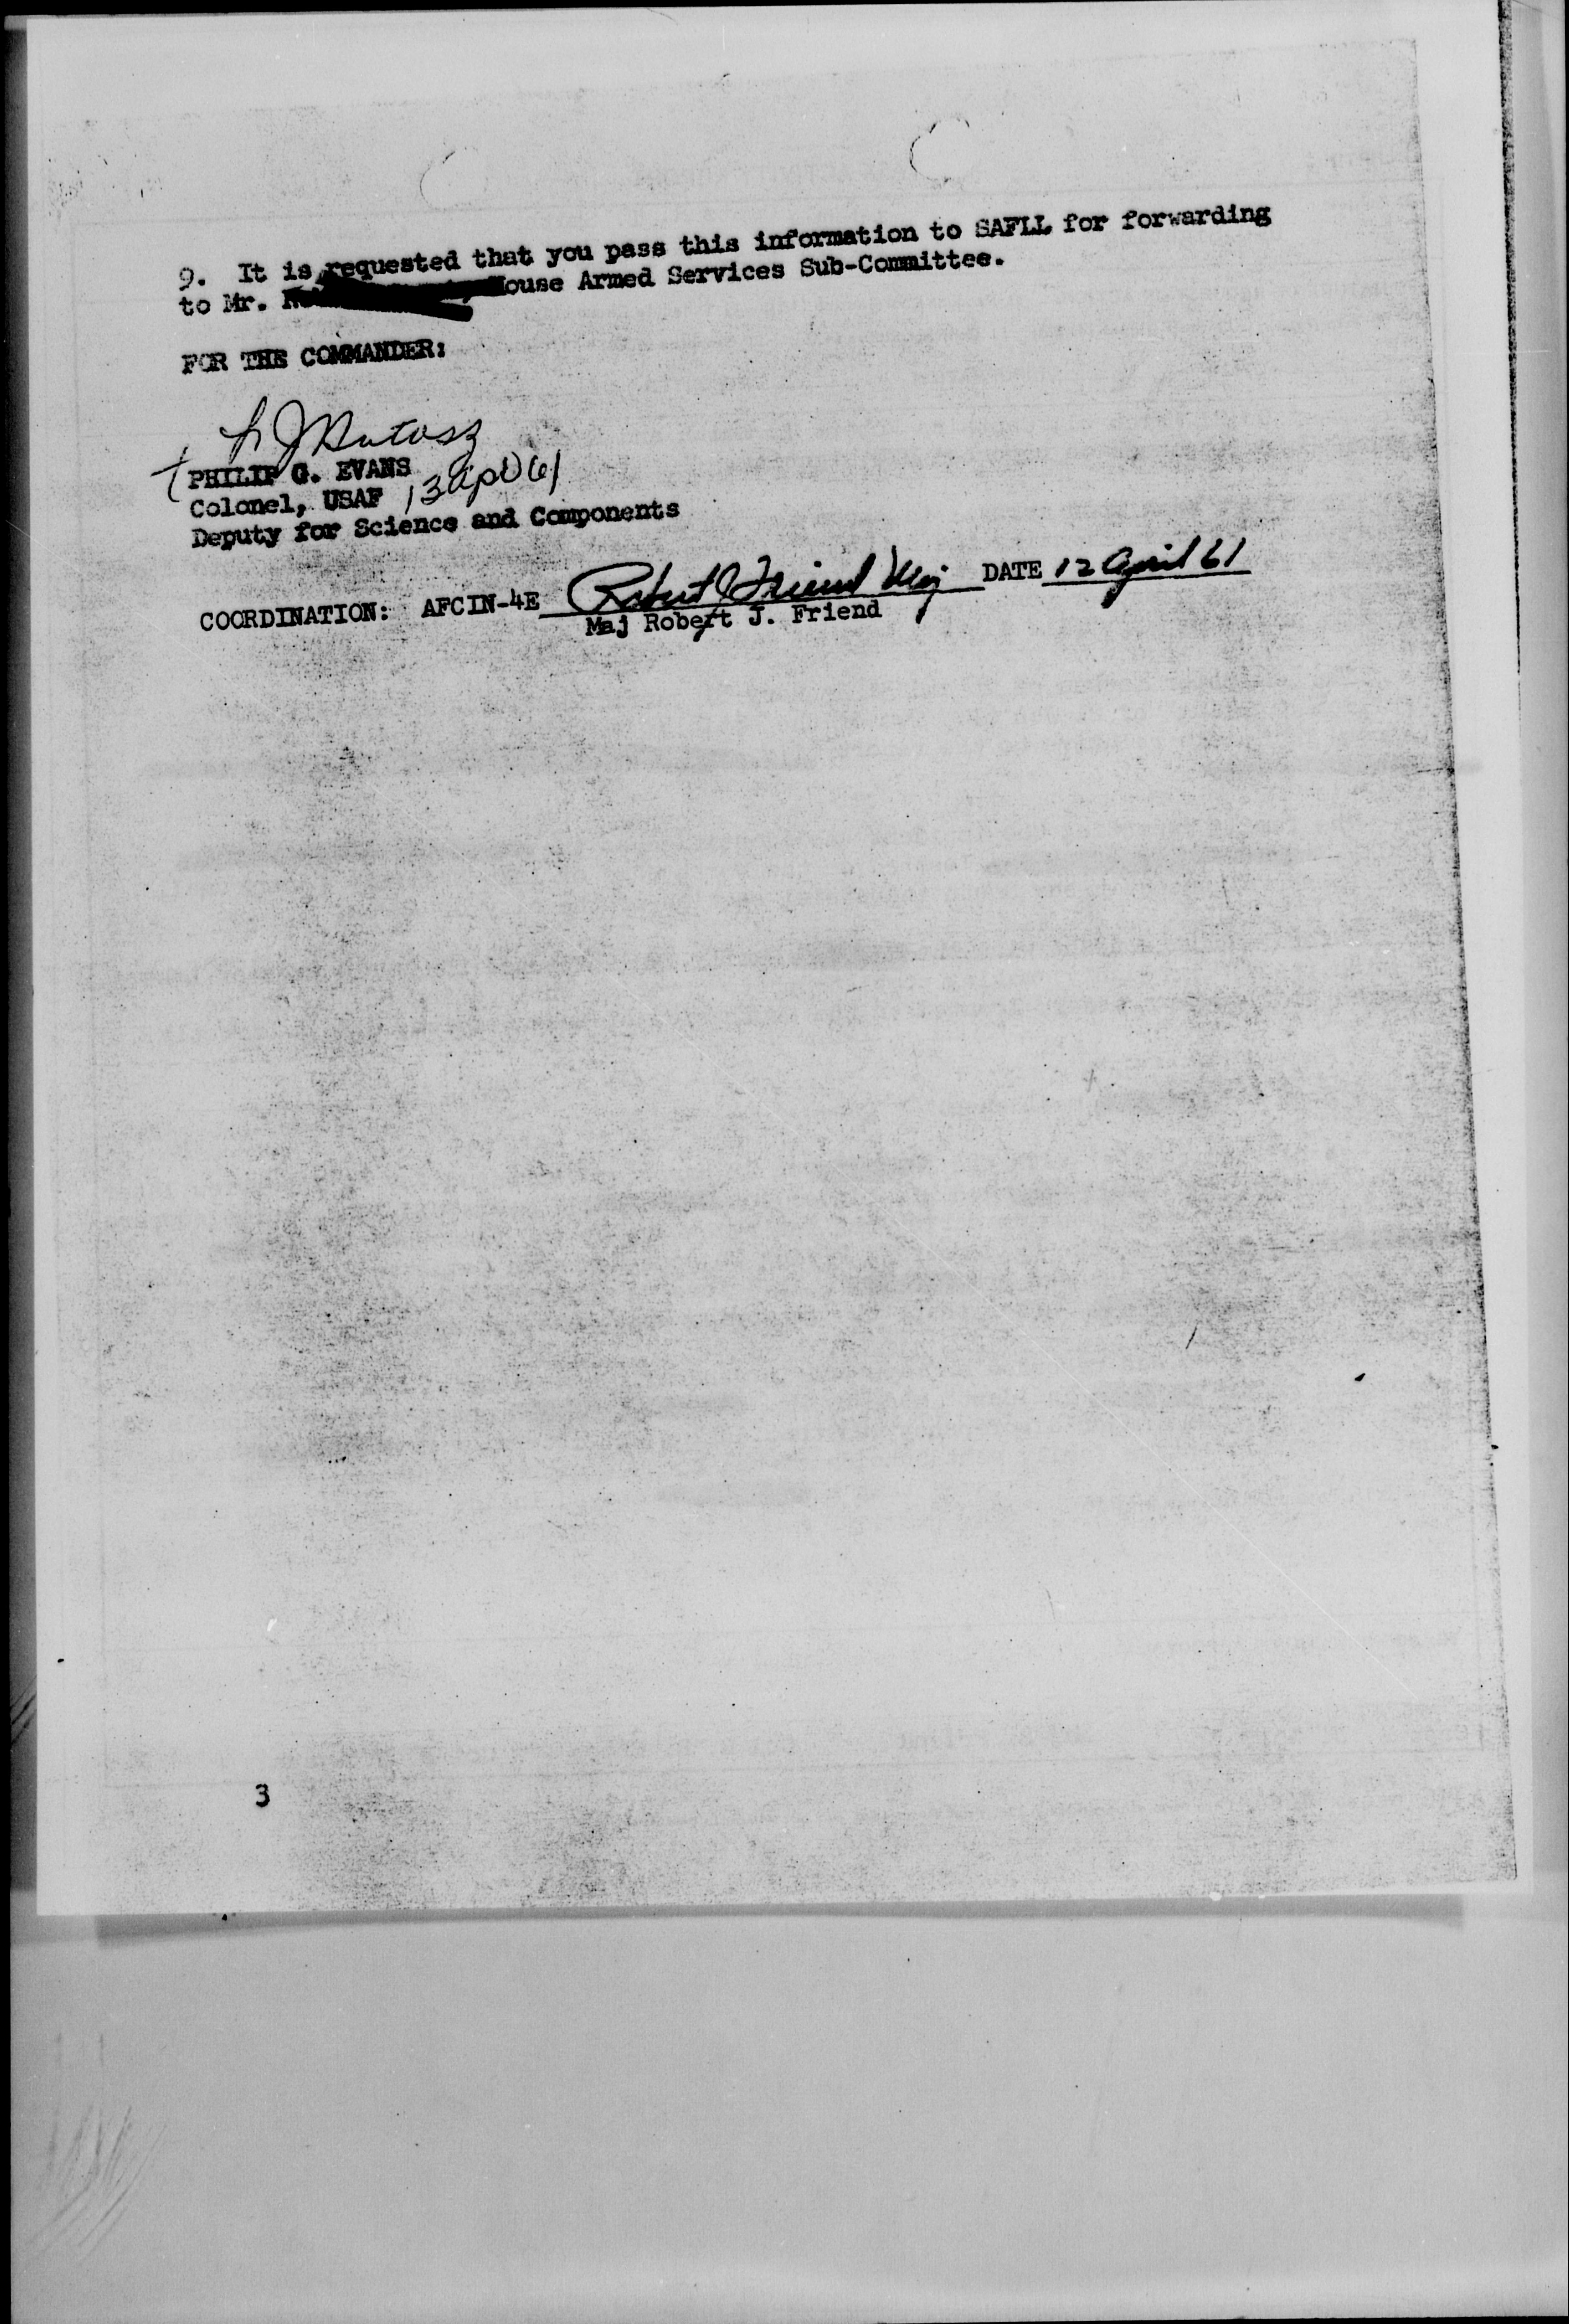 9. It is requested that you pass this information to SAFLL for forwarding
to Mr. House Armed Services Sub-Committee.
FOR THE COMMANDER:
PHILIP G. EVANS
Colonel, USAF 13 Apr 61
Deputy for Science and Components
COORDINATION: AFCIN-4E Robert J Friend Maj DATE 12 April 61
Maj Robert J. Friend
3